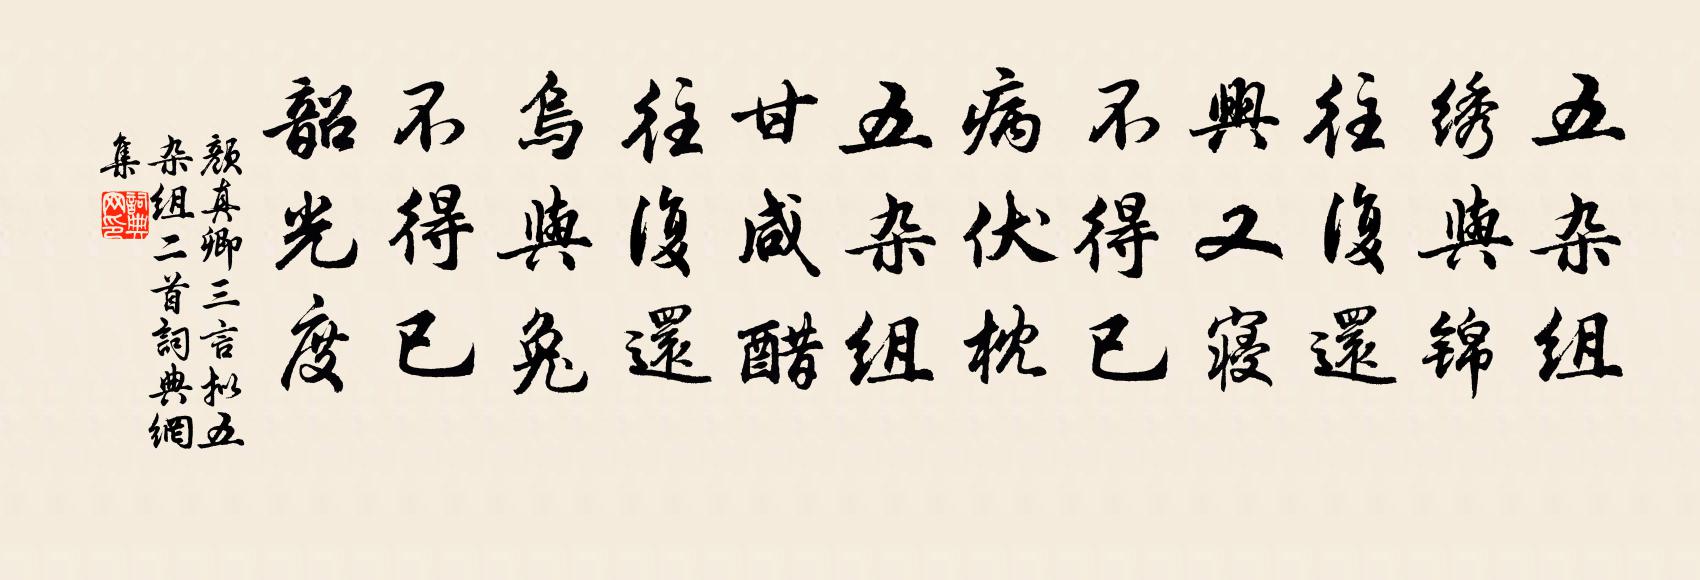 五杂组
绣與锦
往復還
興又寝
不得已
病伏枕
五杂组
甘咸醋
往復還
烏與兔
不得已
韶光度
顏真卿三言拟五
杂组二首詞典網
集
詞典
网印